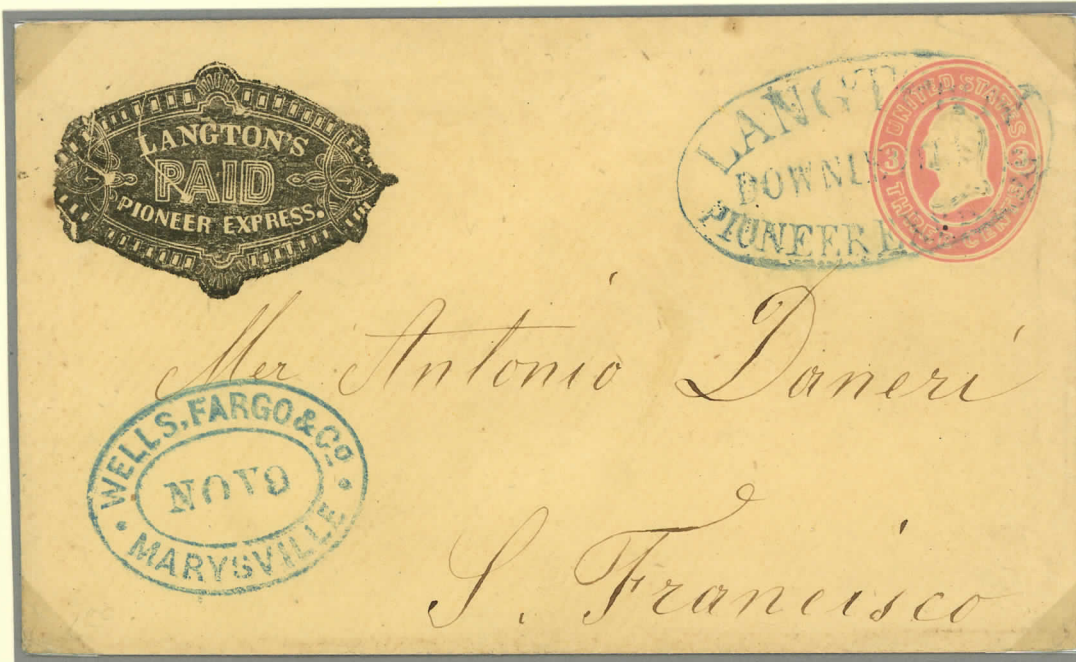 LANGTON'S
PAID
PIONEER EXPRESS.
LANGTON'S
DOWNIE
PIONEER E
UNITED STATES
3 3
THREE CENTS
Mer Antonio Daneri
WELLS, FARGO & Co
NOV 9
MARYSVILLE
S. Francisco